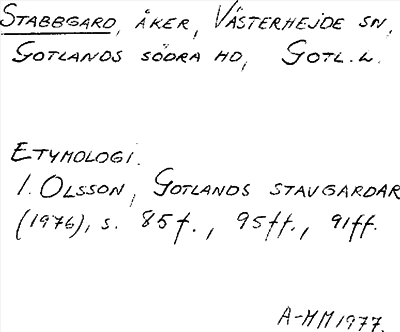 STABBGARD, ÅKER, VÄSTERHEJDE SN,
GOTLANDS SÖDRA HD, GOTL. L.
ETYMOLOGI.
I. OLSSON, GOTLANDS STAVGARDAR
(1976), s. 85f., 95ff., 91ff.
A-MM 1977.